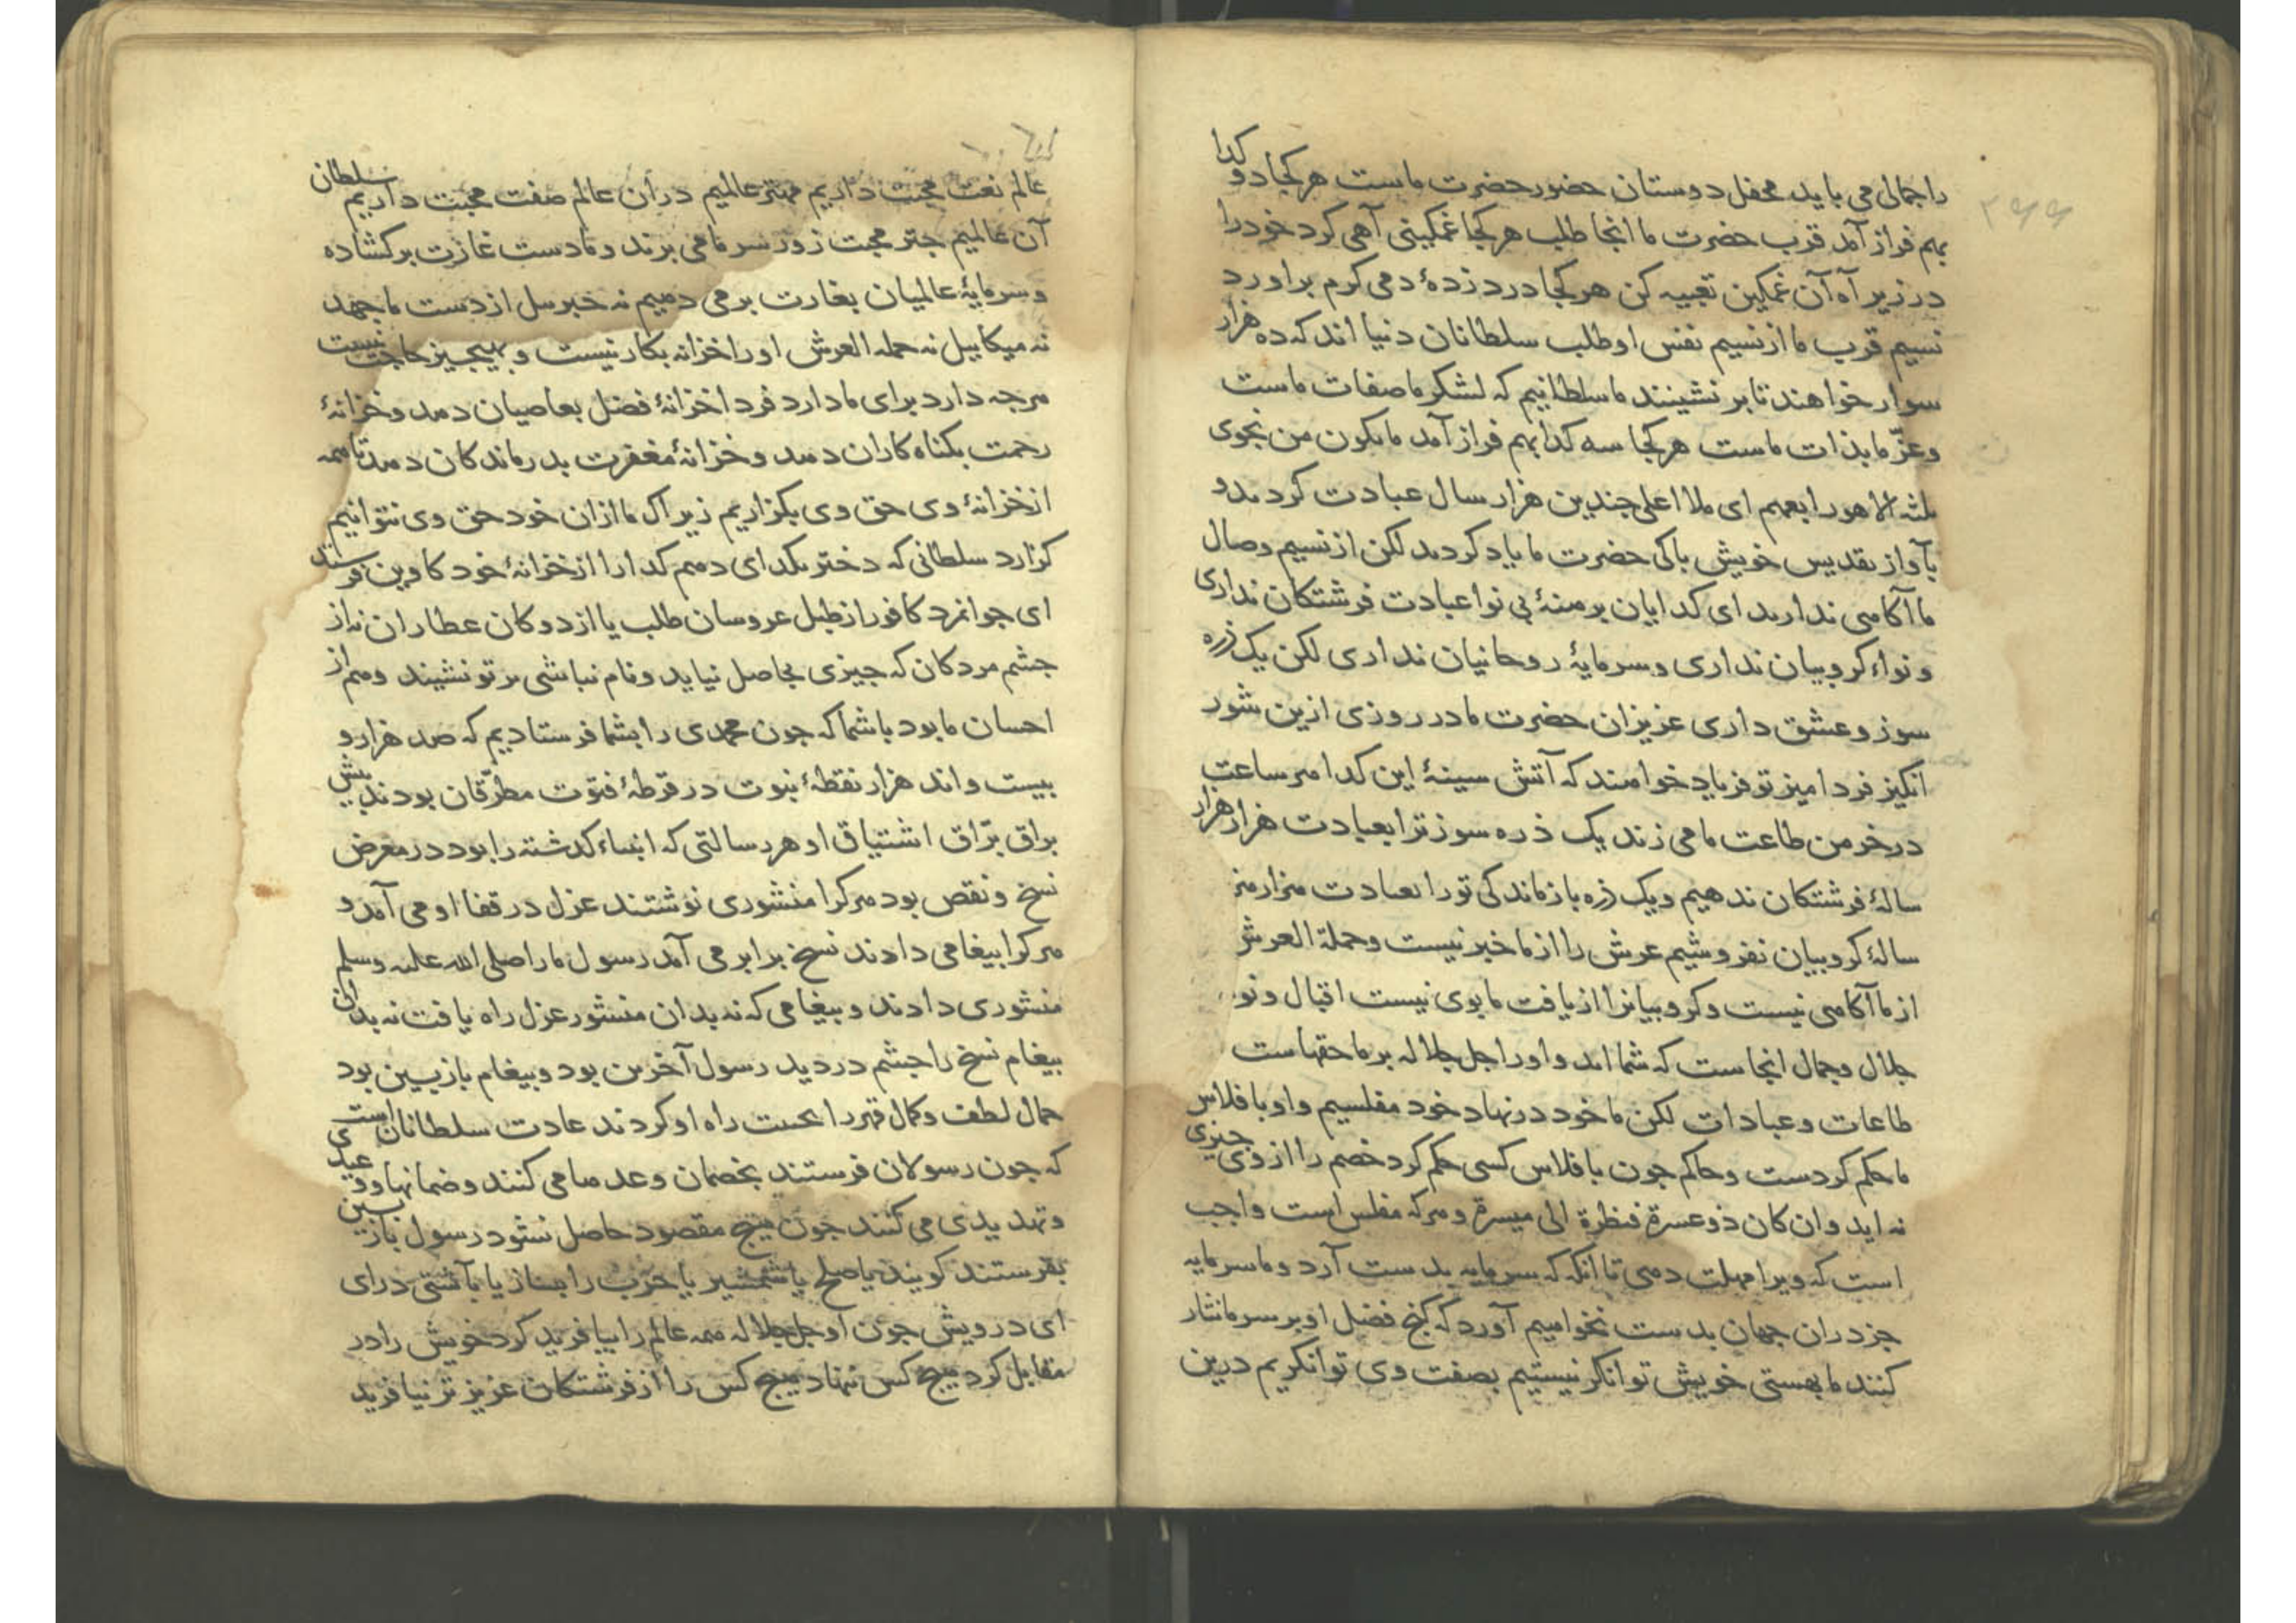 ۲۶۶
را جمالی می باید محفل دوستان حضور حضرت ماست هر کجا دو کدا
بهم فراز آمد قرب حضرت ما انجا طلب هر کجا غمکینی آهی کرد خود را
در زیر آه آن غمکین تعبیه کن هر کجا درد زدهٔ دمی کرم براورد
نسیم قرب ما از نسیم نفس او طلب سلطانان دنیا اند که ده هزار
سوار خواهند تا بر نشینند ما سلطانیم که لشکر ما صفات ماست
وعزّ ما بذات ماست هر کجا سه کدا بهم فراز آمد ما یکون من نجوی
ثلثه الا هو رابعهم ای ملا اعلی چندین هزار سال عبادت کردید و
بآواز تقدیس خویش باکی حضرت ما یاد کردید لکن از نسیم وصال
ما آکاهی ندارید ای کدایان برهنهٔ بی نوا عبادت فرشتکان نداری
و نواء کروبیان نداری و سرمایهٔ روحانیان نداری لکن یک ذره
سوز و عشق داری عزیزان حضرت ما در روزی ازین شور
انکیز فردا میز تو فریاد خواهند که آتش سینهٔ این کدا هر ساعت
در خرمن طاعت ما می زند یک ذره سوز ترا بعبادت هزار هزار
سالهٔ فرشتکان ندهیم و یک ذره بازماندکی تو را بعبادت هزار هز
سالهٔ کروبیان نفروشیم عرش را از ما خبر نیست وحملة العرش
از ما آکاهی نیست و کروبیانرا از یافت ما بوی نیست اقبال و نو
جلال وجمال انجاست که شما اید و اورا جل جلاله بر ما حقهاست
طاعات و عبادات لکن ما خود در نهاد خود مفلسیم و او بافلاس
ما حکم کردست و حاکم جون بافلاس کسی حکم کرد خصم را از وی جیزی
نه اید وان کان ذو عسرة فنظرة الی میسرة و هرکه مفلس است واجب
است که ویرا مهلت دهی تا انکه که سرمایه بدست آرد و ما سرمایه
جز دران جهان بدست نخواهیم آورد که کنج فضل او بر سر ما نثار
کنند ما بهستی خویش توانکر نیستیم بصفت وی توانکریم درین
عالم نعت محبت داریم مهتر عالمیم دران عالم صفت محبت داریم سلطان
آن عالمیم جتر محبت ز وز سر ما می برند و ما دست غارت برکشاده
و سرمایهٔ عالمیان بغارت بر می دهیم نه خبر سل از دست ما جهد
نه میکاییل نه حمله العرش اورا خزانه بکار نیست و بهیجیز حاجت نیست
هرجه دارد برای ما دارد فردا خزانهٔ فضل بعاصیان دهد و خزانهٔ
رحمت بکناه کاران دهد و خزانهٔ مغفرت بدرماندکان دهد تا همه
از خزانهٔ وی حق وی بکزاریم زیراک ما ازان خود حق وی نتوانیم
کزارد سلطانی که دختر بکدای دهم کدا را از خزانهٔ خود کاوین فرستد
ای جوانمرد کافور از طبل عروسان طلب یا از دوکان عطاران نه از
جشم مردکان که جیزی بحاصل نیاید و نام نباشی بر تو نشیند و هم از
احسان ما بود با شما که جون محمدی را بشما فرستادیم که صد هزار و
بیست و اند هزار نقطهٔ نبوت در قرطهٔ فتوّت مطرّقان بودند پیش
براق برّاق اشتیاق او هر رسالتی که انبیاء کدشته را بود در معرض
نسخ و نقص بود هرکرا منشوری نوشتند عزل در قفا او می آمد و
هرکرا بیغامی دادند نسخ برابر می آمد رسول ما را صلی الله علیه وسلم
منشوری دادند و بیغامی که نه بدان منشور عزل راه یافت نه بدان
بیغام نسخ را جشم در دید رسول آخرین بود و بیغام بازبسین بود
جمال لطف وکمال قهر را بحست راه او کردند عادت سلطانان است
که جون رسولان فرستند بخصمان وعدها می کنند و ضمانها و وعیدی
و تهدیدی می کنند جون هیچ مقصود حاصل نشود رسول بازبسین
بفرستند کویند یا صلح یا شمشیر یا حرب را بساز یا بآشتی درای
ای درویش جون او جل جلاله همه عالم را بیافرید کرد خویش را در
مقابل کرد هیچ کس ننهاد هیچ کس را از فرشتکان عزیزتر نیافرید